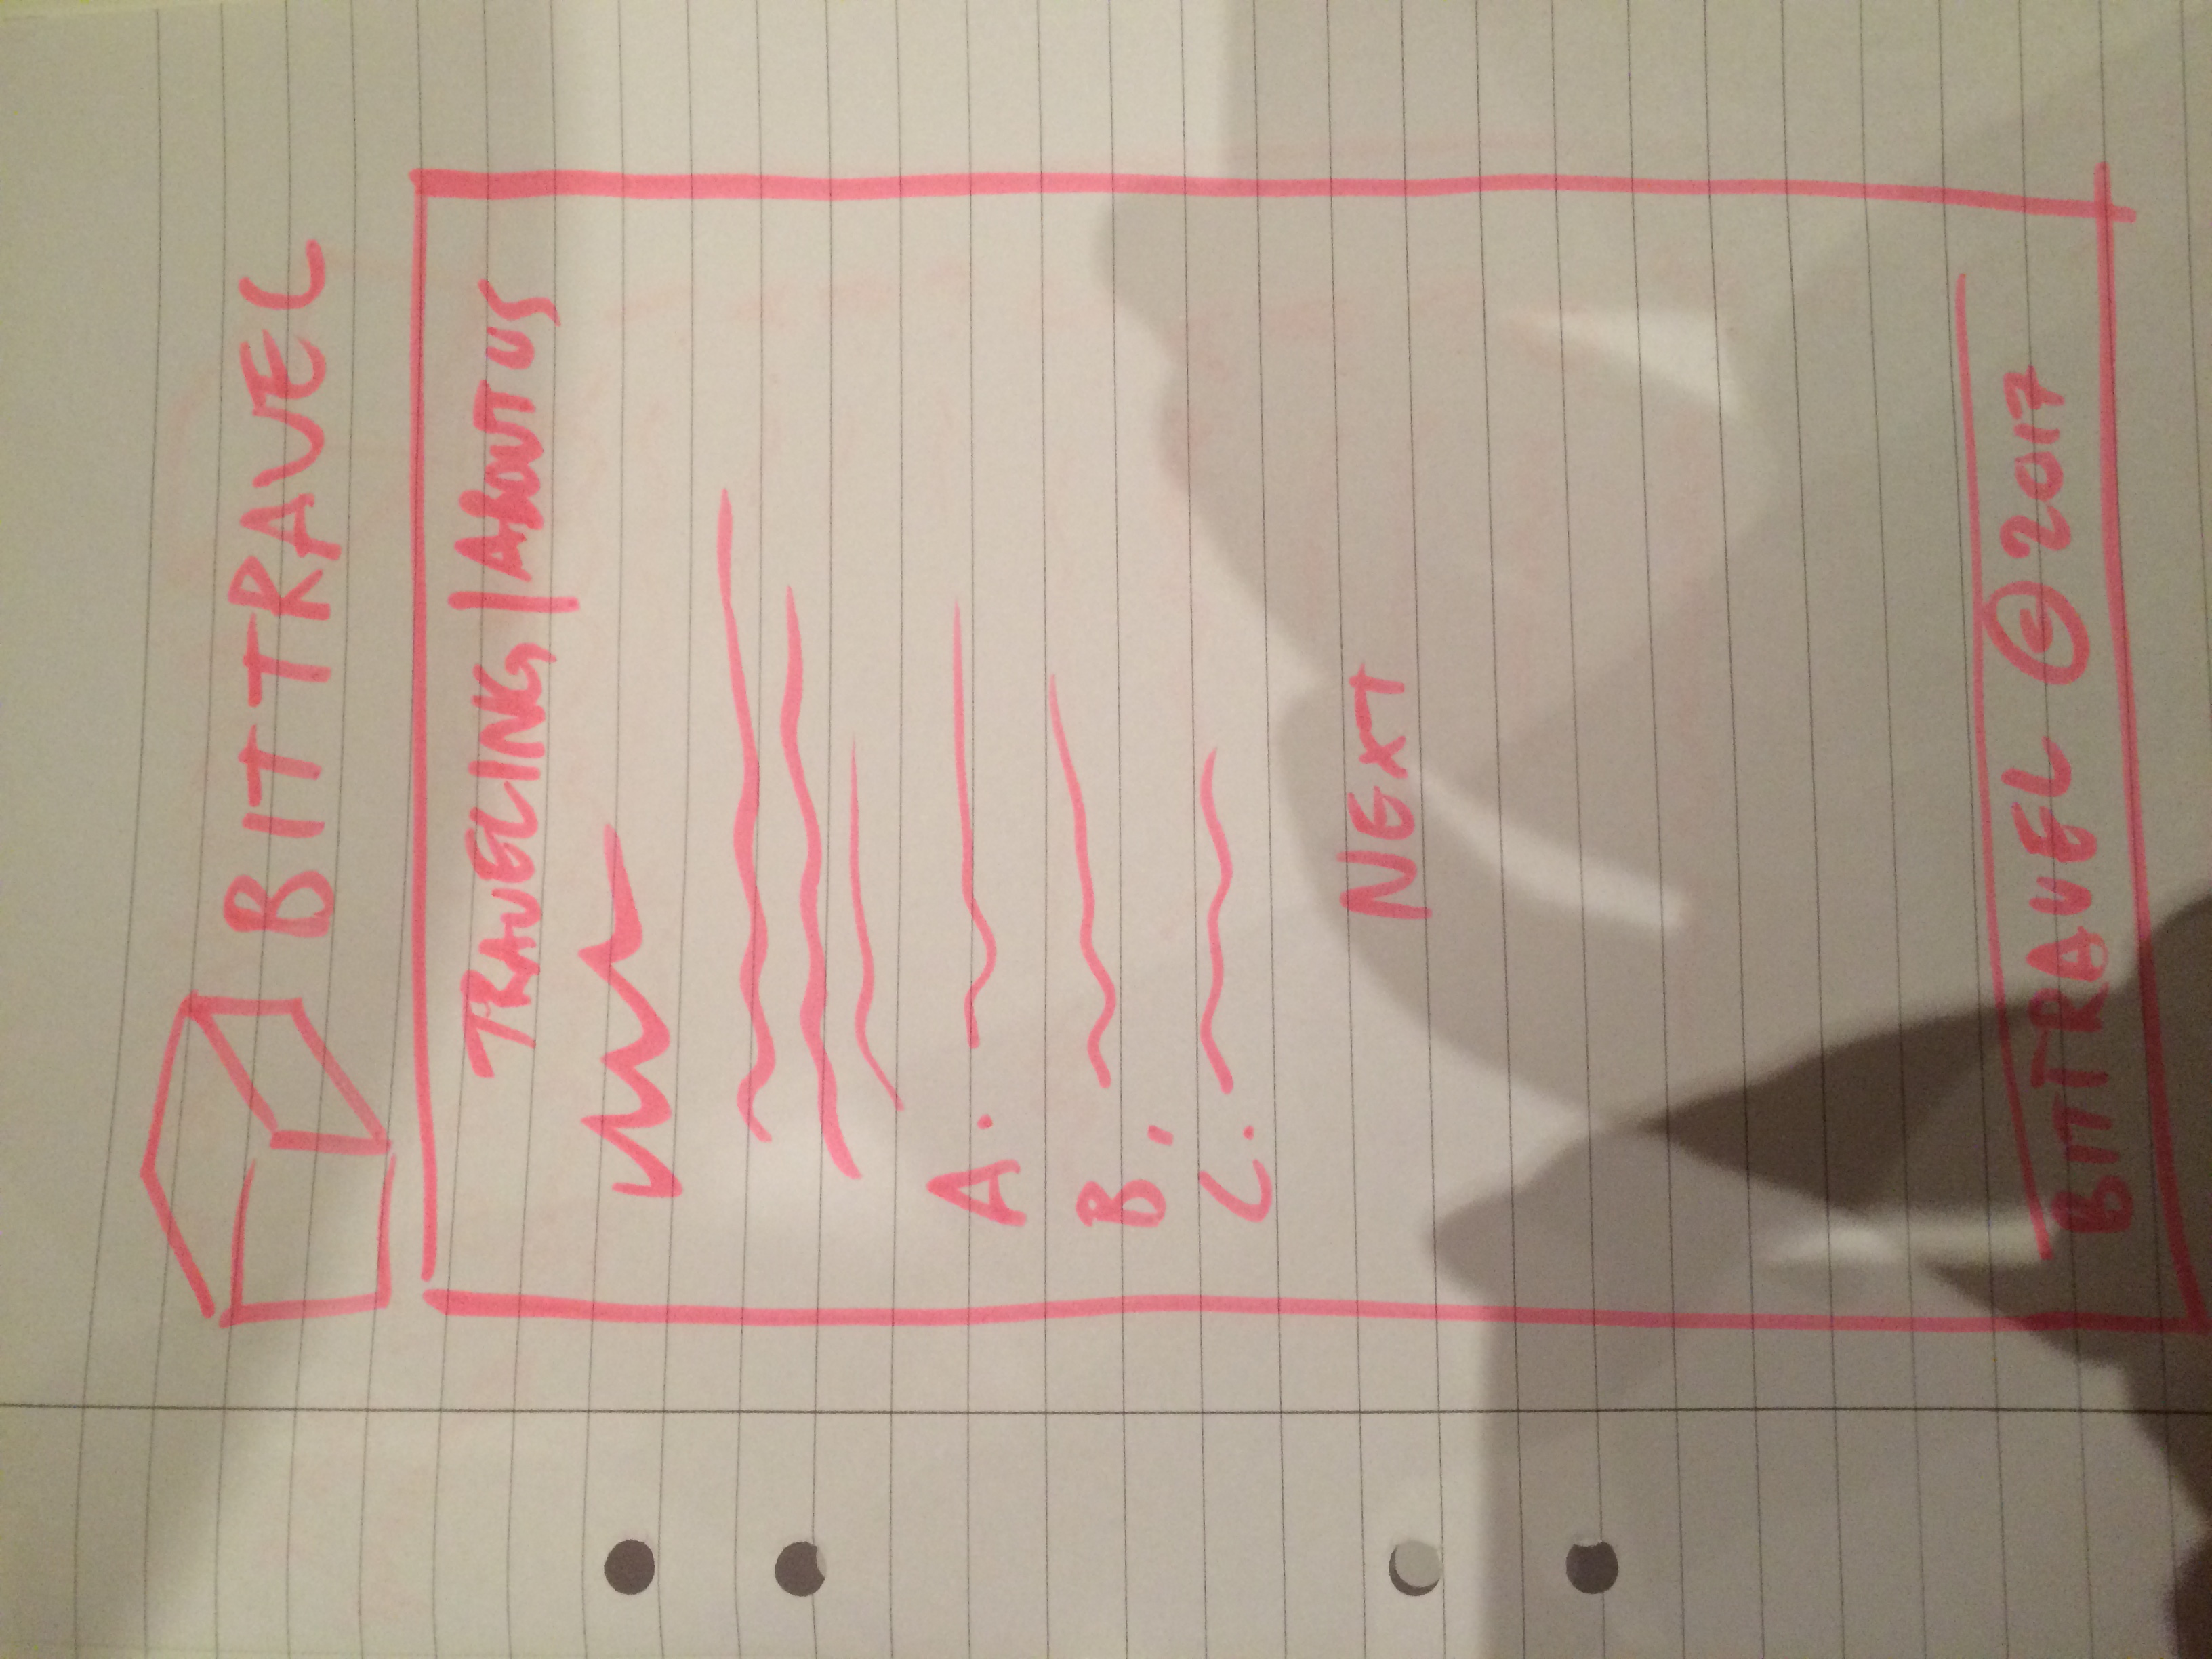 BITTRAVEL
TRAVELING | ABOUT US
A.
B.
C.
NEXT
BITTRAVEL © 2017